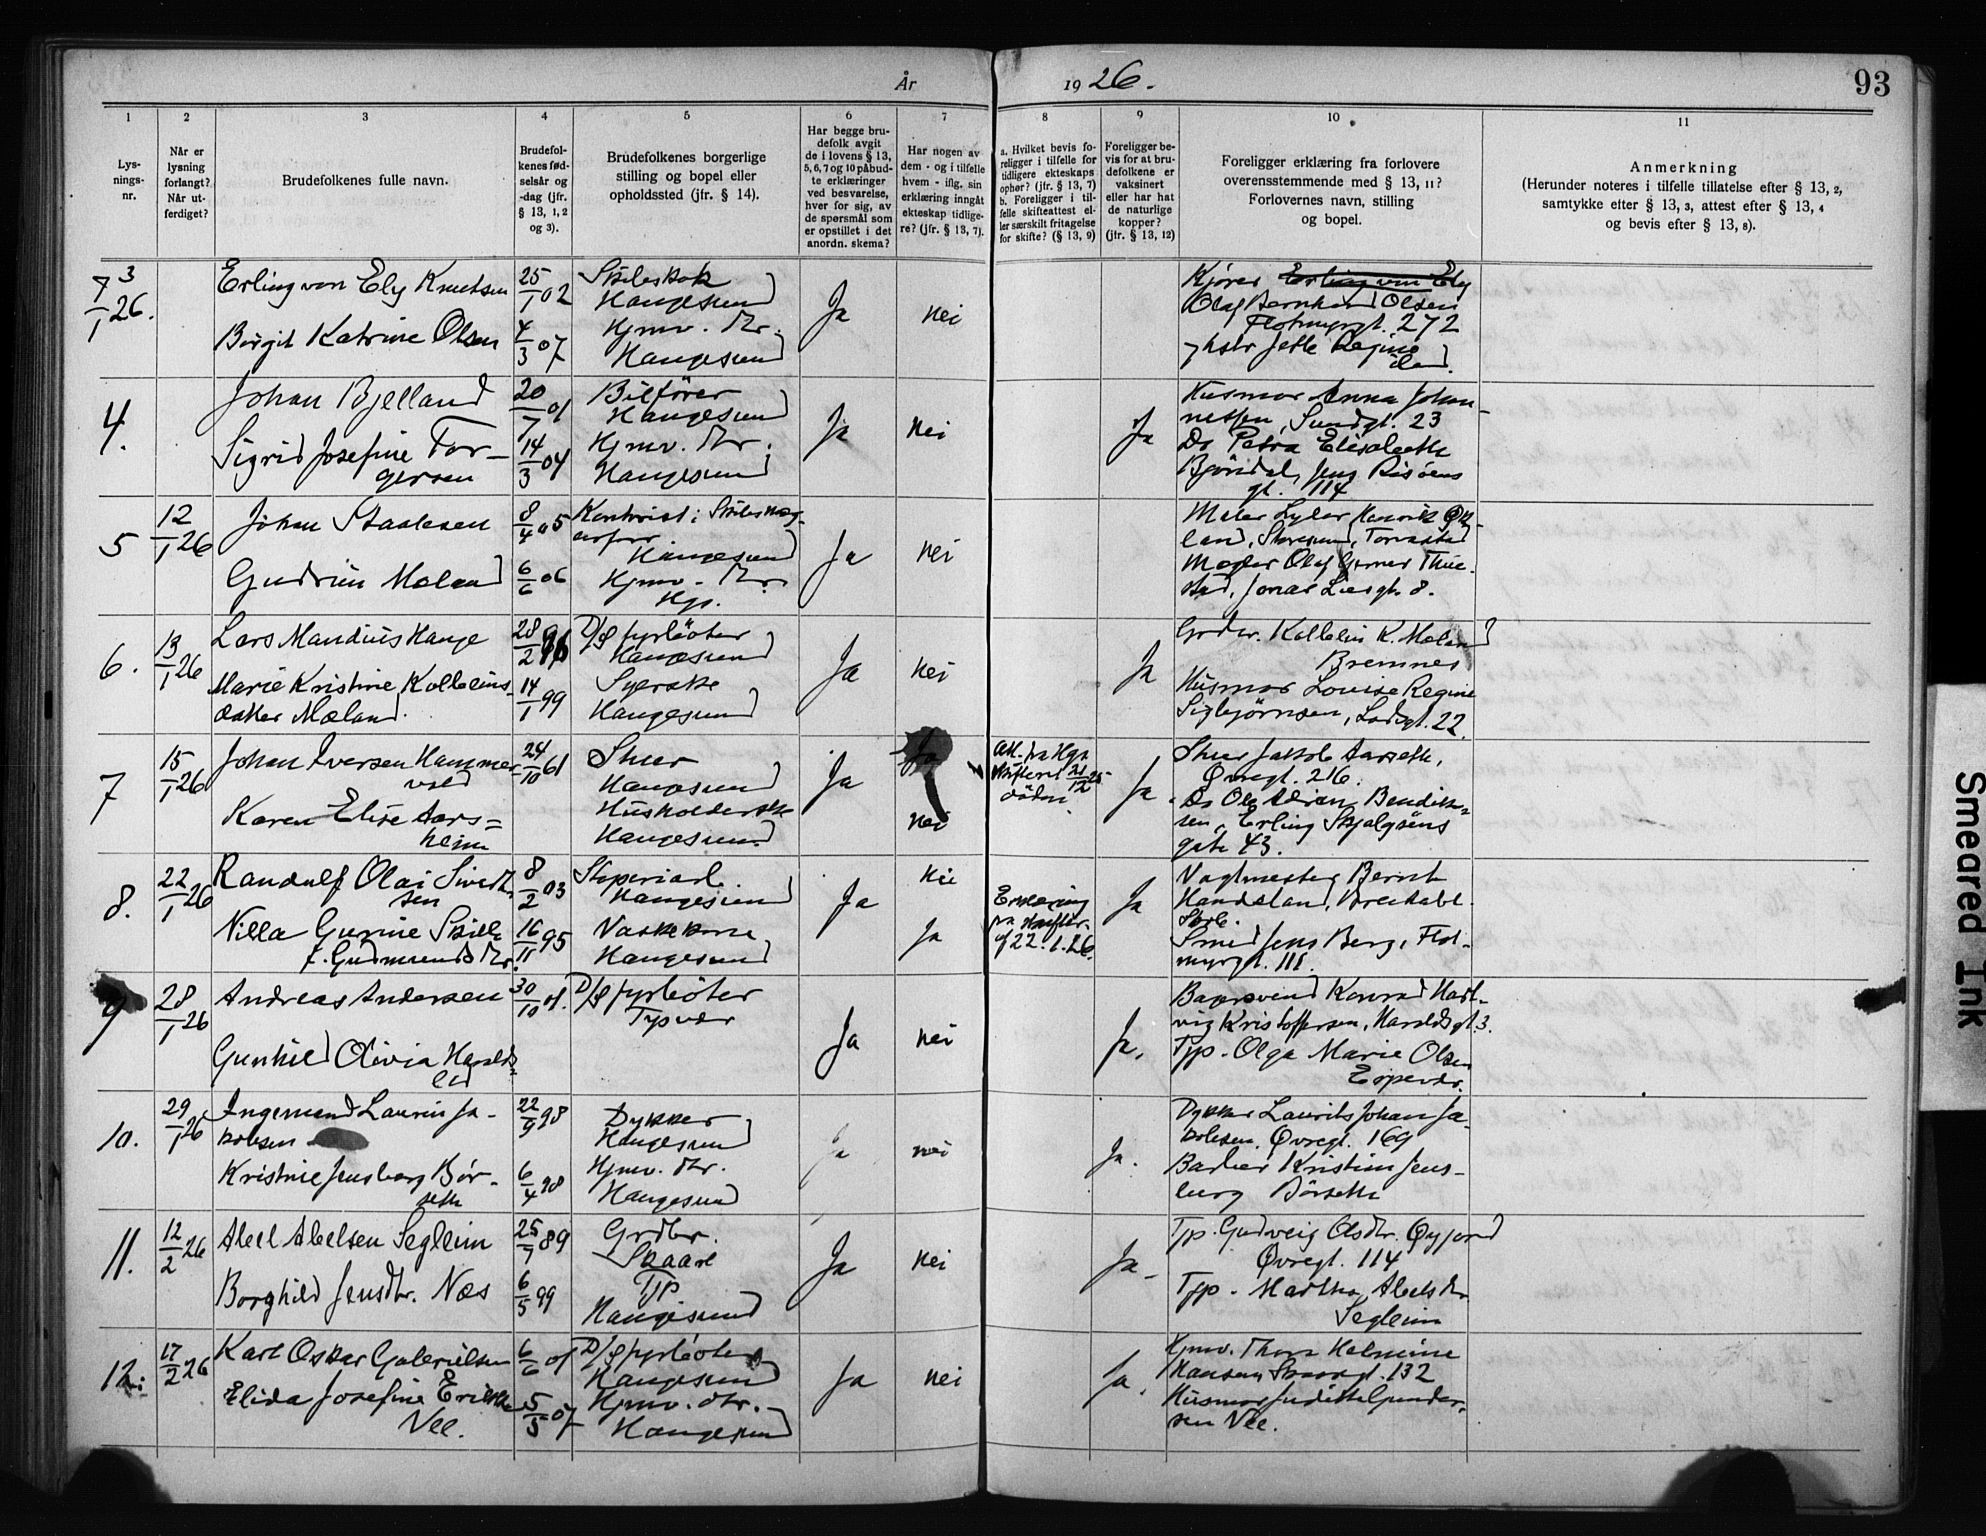 År 1926.
93
1
2
3
4
5
6
7
8
9
10
11
Lys-
nings-
nr.
Når er
lysning
forlangt?
Når ut-
ferdiget?
Brudefolkenes fulle navn.
Brudefol-
kenes fød-
selsår og
-dag (jfr.
§ 13, 1, 2
og 3).
Brudefolkenes borgerlige
stilling og bopel eller
opholdssted (jfr. § 14).
Har begge bru-
defolk avgit
de i lovens § 13,
5, 6, 7 og 10 påbud-
te erklæringer
ved besvarelse,
hver for sig, av
de spørsmål som
er opstillet i det
anordn. skema?
Har nogen av
dem - og i tilfelle
hvem - iflg. sin
erklæring inngåt
ekteskap tidlige-
re? (jfr. § 13, 7).
a. Hvilket bevis fo-
religger i tilfelle for
tidligere ekteskaps
ophør? (jfr. § 13, 7)
b. Foreligger i til-
felle skifteattest el-
ler særskilt fritagelse
for skifte? (§ 13, 9)
Foreligger be-
vis for at bru-
defolkene er
vaksinert
eller har hat
de naturlige
kopper?
(jfr. § 13, 12)
Foreligger erklæring fra forlovere
overensstemmende med § 13, 11?
Forlovernes navn, stilling
og bopel.
Anmerkning
(Herunder noteres i tilfelle tillatelse efter § 13, 2,
samtykke efter § 13, 3, attest efter § 13, 4
og bevis efter § 13, 8).
3
7/1 26.
Erling von Ely Knutsen
25/1 02
Haugesund
Birgit Katrine Olsen
4/3 07
Hjmv. dtr.
Haugesund
Ja
nei
Kjører Erling von Ely
Olaf Bernhard Olsen
Flotmyrgt. 272
Jette Regine
4.
Johan Bjelland
20/7 01
Bilfører
Haugesund
Sigrid Josefine Tor-
gersen
14/3 04
Hjmv. dtr.
Haugesund
Ja
nei
Ja
Husmor Anna Johan-
nessen, Sundgt. 23
Do Petra Elisabeth
Bjørndal, Jens Risøens
gt. 114
5
12/1 26
Johan Staalesen
8/4 05
Kontorist i
Haugesund
Gudrun Meland
6/6 06
Hjmv. dtr.
Hgs.
Ja
nei
Maler
Torvastad
Maler Olaf
Jonas Liesgt. 8.
6.
13/1 26
Lars Mandius Hauge
28/2
D/S fyrbøter
Haugesund
Marie Kristine Kolbeins-
datter Mæland.
14/1 99
Syerske
Haugesund
Ja
nei
Ja
Grdbr. Kolbein K. Meland
Bremnes
Husmor Louise Regine
Sigbjørnsen, 22.
7
15/1 26
Johan Iversen Hammer-
vold
24/10 61
Stuer
Haugesund
Karen Elise Aars=
heim
Husholderske
Haugesund
Ja
Ja
nei
Att. fra Hgs
skifteret 21/12 25
Ja.
Stuer Jakob Aarseth,
Øvregt. 216.
Do Ole Adrian Bendik-
sen, Erling Skjalgsøns
gate 43.
8.
22/1 26
Randulf Olai Sivert-
sen
8/2 03
Haugesund
Nilla Gurine
f. Gudmundsdtr.
16/11 95
Vaskekone
Haugesund
Ja
nei
Ja
Erklæring
fra skifter.
af 22.1.26.
Ja
Vagtmester Bernt
Handeland,
Smed Jens Berg, Flot-
myrgt. 111.
9
28/1 26
Andreas Andersen
30/10 01.
D/S fyrbøter
Tysvær
Gunhild Olivia Haralds-
eid
Ja
nei
Ja.
Bagersvend Konrad Hart-
vig Kristoffersen, Haraldsgt. 3.
Tjp. Olga Marie Olsen
10.
29/1 26
Ingemund Laurin Ja-
kobsen
22/9 98
Dykker
Haugesund
Kristine Jensberg Bør-
seth
6/4 98
Hjmv. dtr.
Haugesund
Ja
nei
Ja.
Dykker Laurits Johan Ja-
kobsen, Øvregt. 169
Barber Kristian Jens-
berg Børseth
11.
12/2 26
Abel Abelsen Segleim
25/7 89
Grdbr.
Skaare
Borghild Jensdtr. Næs
6/5 99
Tjp
Haugesund
Ja
nei
Ja
Tjp. Gudveig Olsdtr. Øyjord
Øvregt. 114
Tjp. Martha Abelsdtr
Segleim
12.
17/2 26
Karl Oskar Gabrielsen
6/6 01
D/S fyrbøter
Haugesund
Elida Josefine Eriksen
Vee.
5/5 07
Hjmv. dtr.
Haugesund
Ja
nei
Ja.
Hjmv. Thora Helmine
Hansen 132
Husmor Judith Gunder-
sen Vee.
Smeared Ink